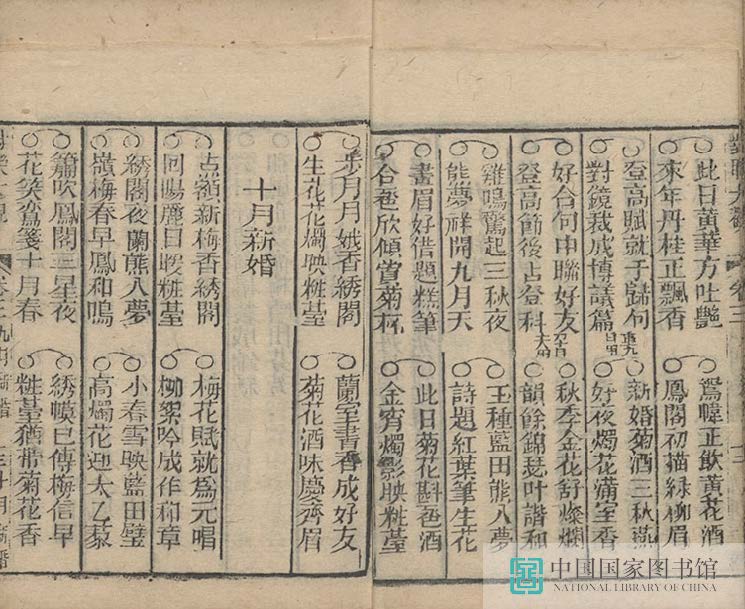 卷三
此日黃華方吐艷
鴛幃正飲黃花酒
來年丹桂正飄香
鳳閣初描綠柳眉
登高賦就于歸句
新婚菊酒三秋燕
對鏡裁成博議篇 重九日用
好夜燭花滿室香
好合句中聯好友
秋季金花舒燦爛
登高節後占登科
韻餘錦瑟叶諧和
雞鳴驚起三秋夜
玉種藍田熊入夢
能夢祥開九月天
詩題紅葉筆生花
畫眉好借題糕筆
此日菊花斟巹酒
合巹欣傾賞菊杯
金宵燭影映粧臺
步月月娥香綉閣
蘭室書香成好友
生花花燭映粧臺
菊花酒味慶齊眉
十月新婚
点額新梅香綉閣
梅花賦就為元唱
回暘麗日暖粧臺
柳絮吟成作和章
綉閣夜蘭熊入夢
小春雪映藍田璧
嶺梅春早鳳和鳴
高燭花迎太乙藜
簫吹鳳閣三星夜
綉幙已傳梅信早
花笑鸞箋十月春
粧臺猶帶菊花香
中国国家图书馆
NATIONAL LIBRARY OF CHINA